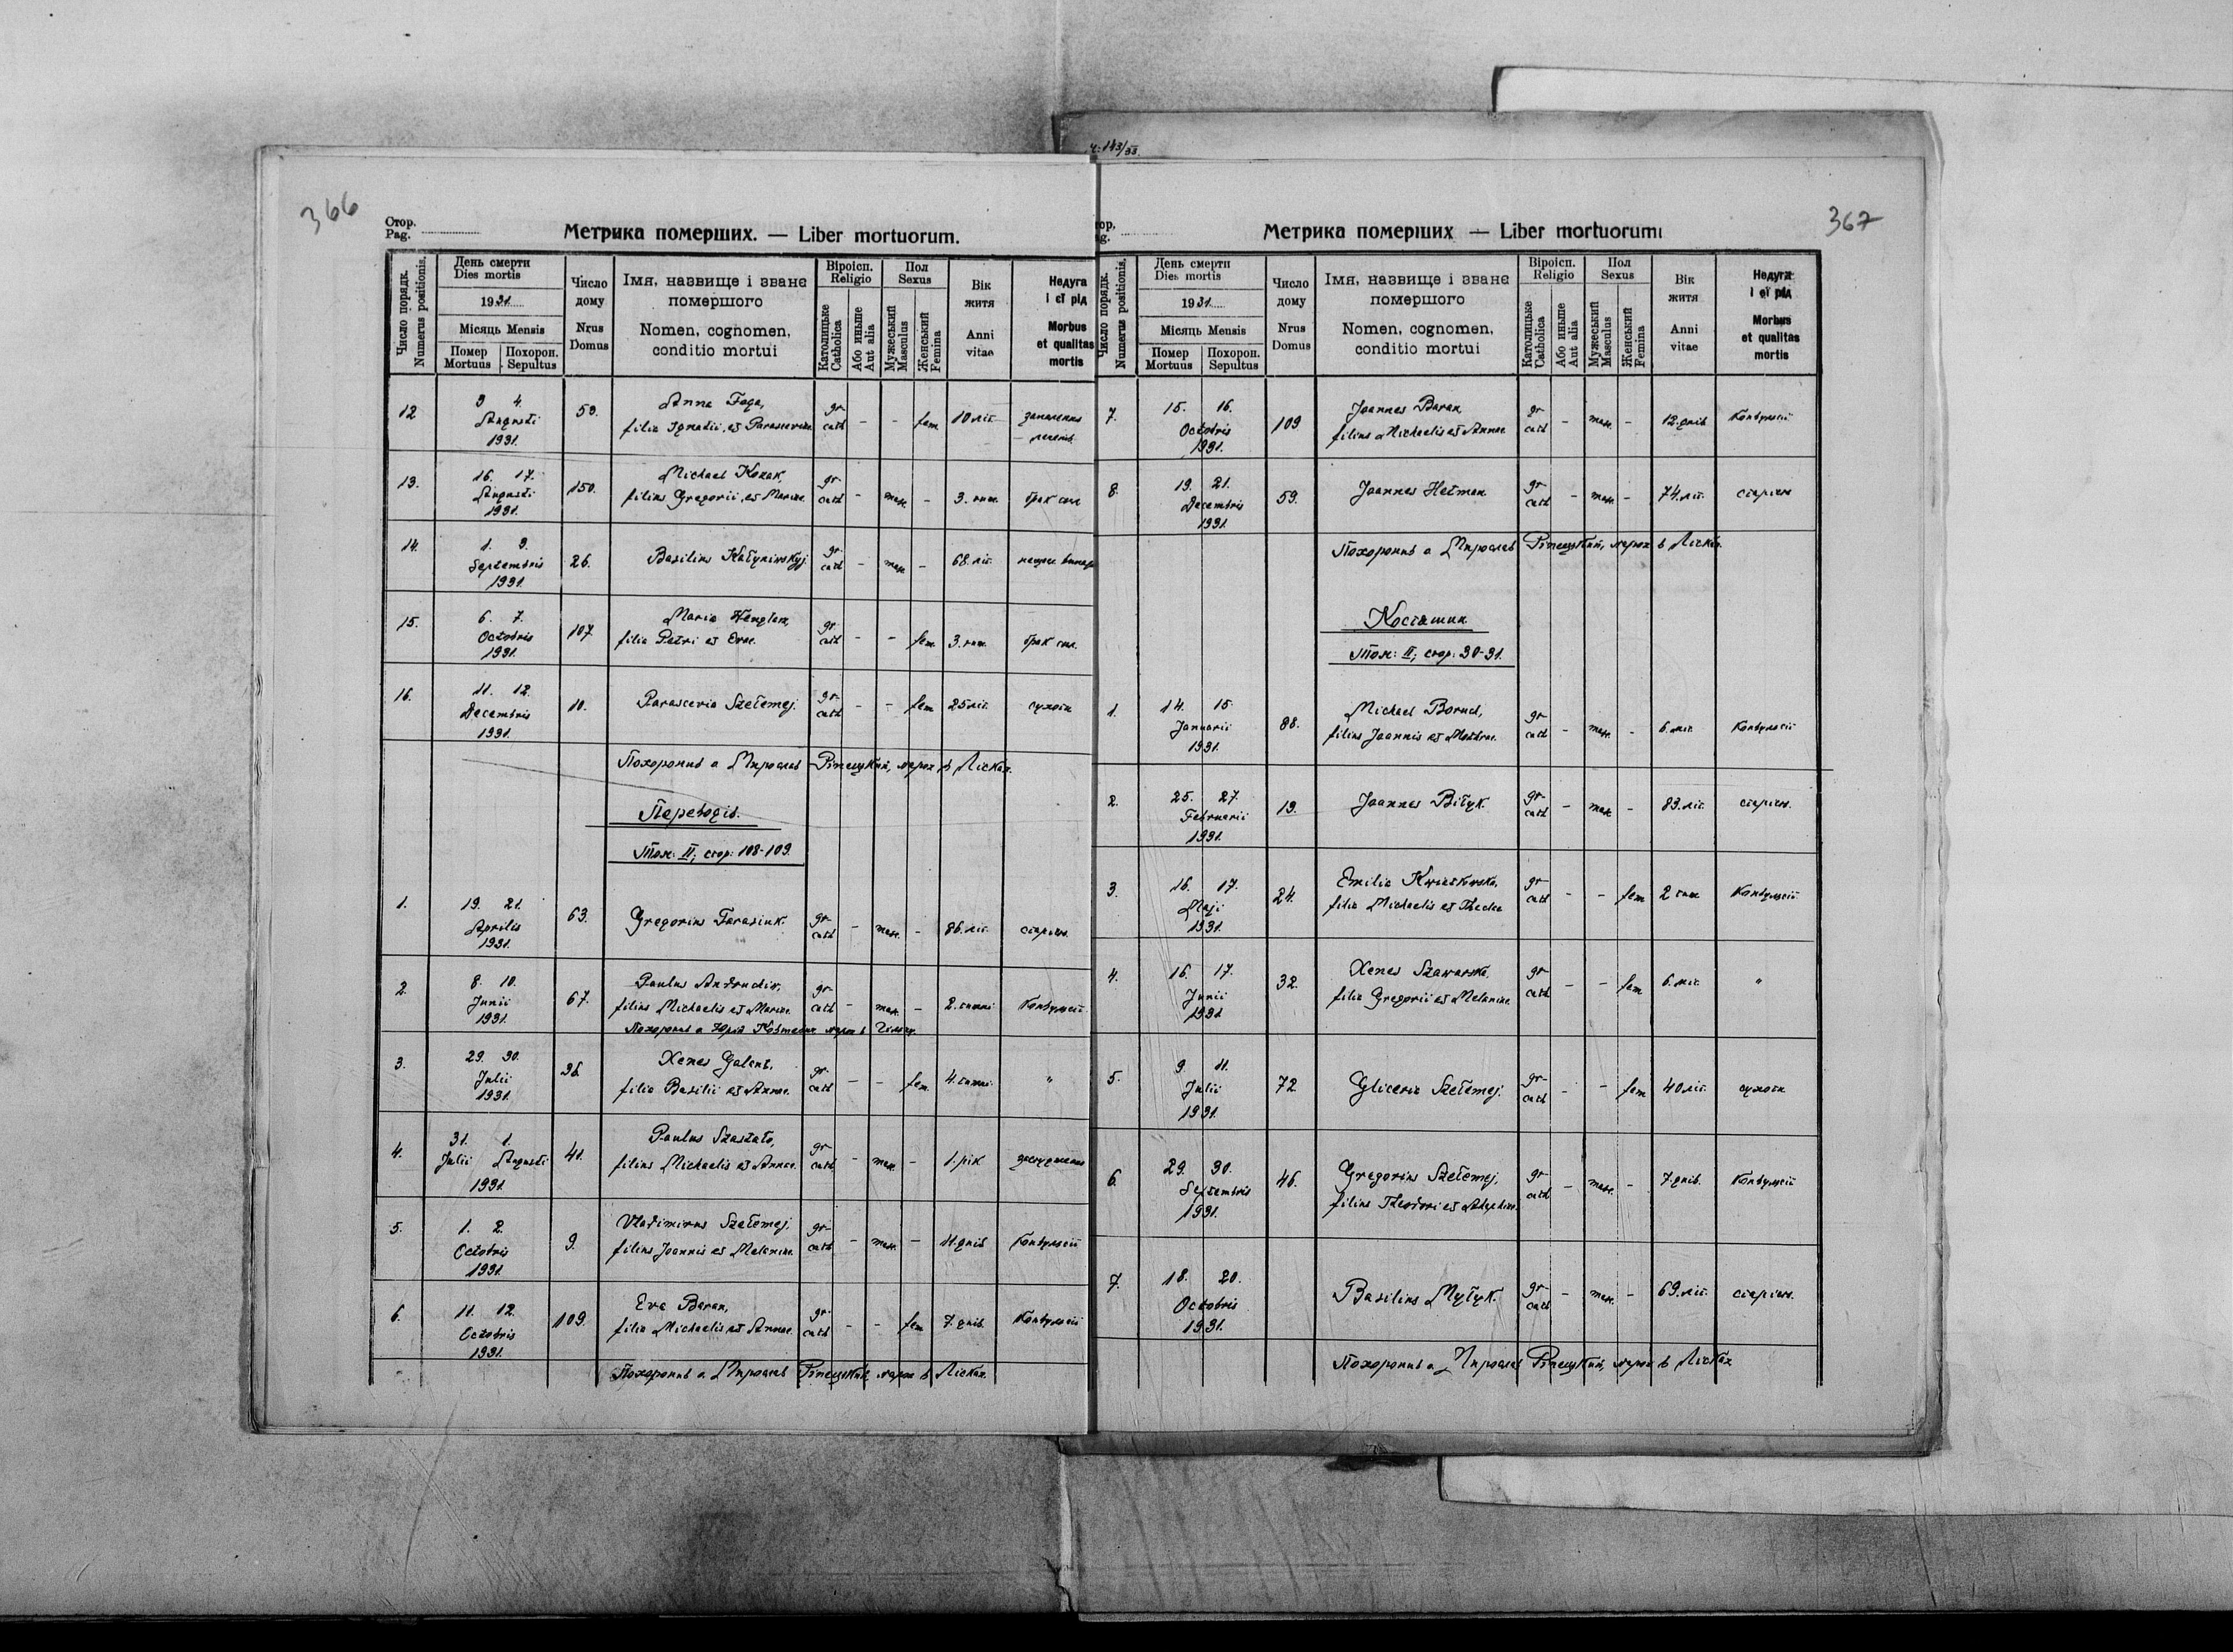 366
Стор.
Pag.
Метрика померших. — Liber mortuorum.
Число порядк.
Numerus positionis.
День смерти
Dies mortis
1931
Місяць Mensis
Помер
Mortuus
Похорон.
Sepultus
Число
дому
Nrus
Domus
Імя, назвище і зване
помершого
Nomen, cognomen,
conditio mortui
Віроісп.
Religio
Католицьке
Catholica
Або иньше
Aut alia
Пол
Sexus
Мужеський
Masculus
Женський
Femina
Вік
житя
Anni
vitae
Недуга
і єї рід
Morbus
et qualitas
mortis
12 3 4. Augusti 1931. 59. Anna Faga, gr-cath - - fem 10 літ
filia Ignatii, et Parasceviae. запалення легенів.
13. 16. 17. Augusti 1931. 150. Michael Kozak, gr-cath - mas. - 3. тиж. брак сил
filius Gregorii, et Mariae.
14. 1. 3. Septembris 1931. 26. Basilius Katyniwskyj. gr-cath - mas. - 68. літ.
15. 6. 7. Octobris 1931. 107 Maria gr-cath - - fem. 3. тиж. брак сил.
filia Petri et Evae.
16. 11. 12. Decembris 1931. 10. Parascevia Szełemej. gr-cath - - fem 25 літ. сухоти
Похоронив о Мирослав Ріпецький, парох в Лісках.
Переводів.
Том: II; стор: 108-109.
1. 19. 21. Aprilis 1931. 63. Gregorius Tarasiuk. gr-cath - mas. - 86. літ. старість.
2. 8. 10. Junii 1931. 67. Paulus Andruchiw, gr-cath - mas. - 2. тижні Конвульсії
filius Michaelis et Mariae.
Похоронив о Юрій парох в
3. 29. 30. Julii 1931. 36 Xenes Galant, gr-cath - - fem. 4. тижні "
filia Basilii et Annae.
4. 31. Julii 1. Augusti 1931. 41. Paulus Szaszało, gr-cath - mas. - 1. рік
filius Michaelis et Annae.
5. 1. 2. Octobris 1931. 9. Vladimirus Szełemej. gr-cath - mas. - 11. днів Конвульсії
filius Joannis et Melaniae.
6. 11. 12. Octobris 1931. 109. Eva Baran, gr-cath - - fem 7. днів. Конвульсії
filia Michaelis et Annae.
Похоронив о Мирослав Ріпецький, парох в Лісках.
ч: 143/33.
367
тор.
ag.
Метрика померших — Liber mortuorum
Число порядк.
Numerus positionis.
День смерти
Dies mortis
1931
Місяць Mensis
Помер
Mortuus
Похорон.
Sepultus
Число
дому
Nrus
Domus
Імя, назвище і зване
помершого
Nomen, cognomen,
conditio mortui
Віроісп.
Religio
Католицьке
Catholica
Або иньше
Aut alia
Пол
Sexus
Мужеський
Masculus
Женський
Femina
Вік
житя
Anni
vitae
Недуга
і єї рід
Morbus
et qualitas
mortis
7. 15. 16. Octobris 1931. 109 Joannes Baran gr-cath - mas. - 12. днів Конвульсії
filius Michaelis et Annae.
8. 19. 21. Decembris 1931. 59. Joannes Hetman gr-cath - mas. - 74. літ. старість
Похоронив о Мирослав Ріпецький, парох в Лісках.
Костяшин
Том: II; стор: 30-31.
1. 14. 15. Januarii 1931. 88. Michael Borud, gr-cath - mas. - 6. міс. Конвульсії
filius Joannis et
2. 25. 27. Februarii 1931. 19. Joannes Biłyk. gr-cath - mas. - 83. літ. старість.
3. 16. 17. Maji 1931. 24. Emilia Kwiatkowska. gr-cath - - fem 2 тиж Конвульсії
filia Michaelis et Theclae
4. 16. 17. Junii 1931 32. Xenes Szawarska. gr-cath - - fem 6. міс. "
filia Gregorii et Melaniae.
5. 9 11. Julii 1931. 72 Gliceria Szełemej. gr-cath - - fem 40 літ. сухоти
6. 29. 30. Septembris 1931. 46. Gregorius Szełemej. gr-cath - mas. - 7. днів. Конвульсії
filius Theodori et
7. 18. 20. Octobris 1931. Basilius Myłyk. gr-cath - mas. - 69. літ. старість.
Похоронив о Мирослав Ріпецький, парох в Лісках